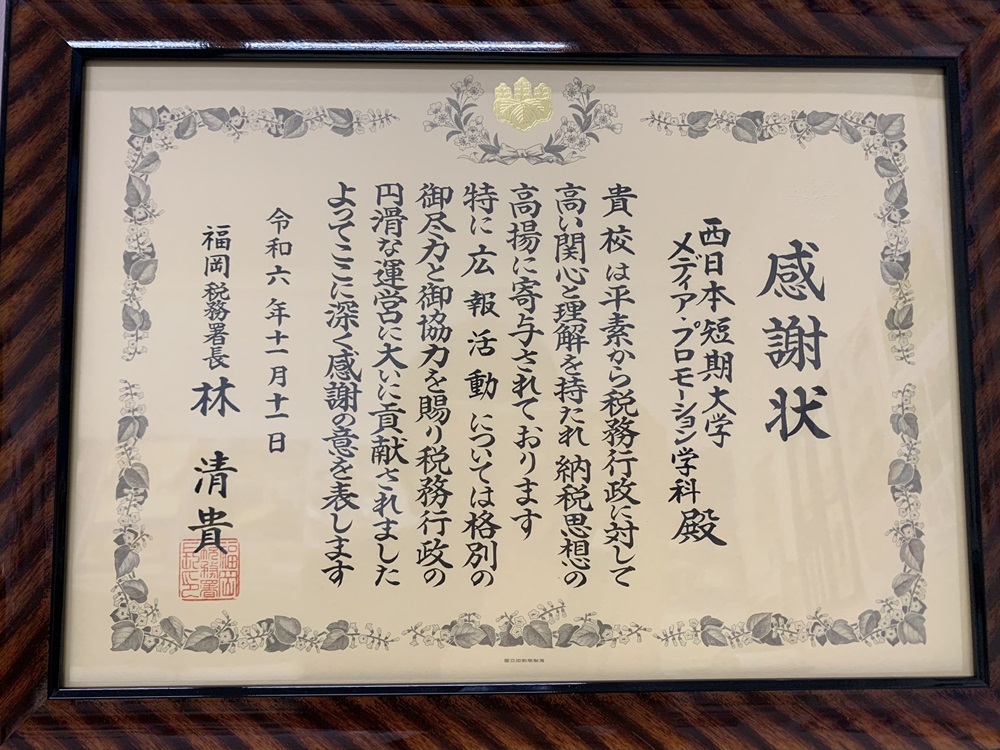 感謝状
西日本短期大学
メディア・プロモーション学科 殿
貴校は平素から税務行政に対して
高い関心と理解を持たれ納税思想の
高揚に寄与されております
特に広報活動については格別の
御尽力と御協力を賜り税務行政の
円滑な運営に大いに貢献されました
よってここに深く感謝の意を表します
令和六年十一月十一日
福岡税務署長 林 清貴